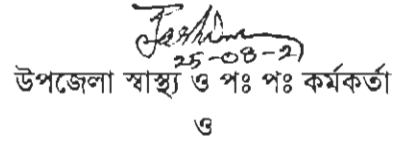 25-08-21
উপজেলা স্বাস্থ্য ও পঃ পঃ কর্মকর্তা
ও